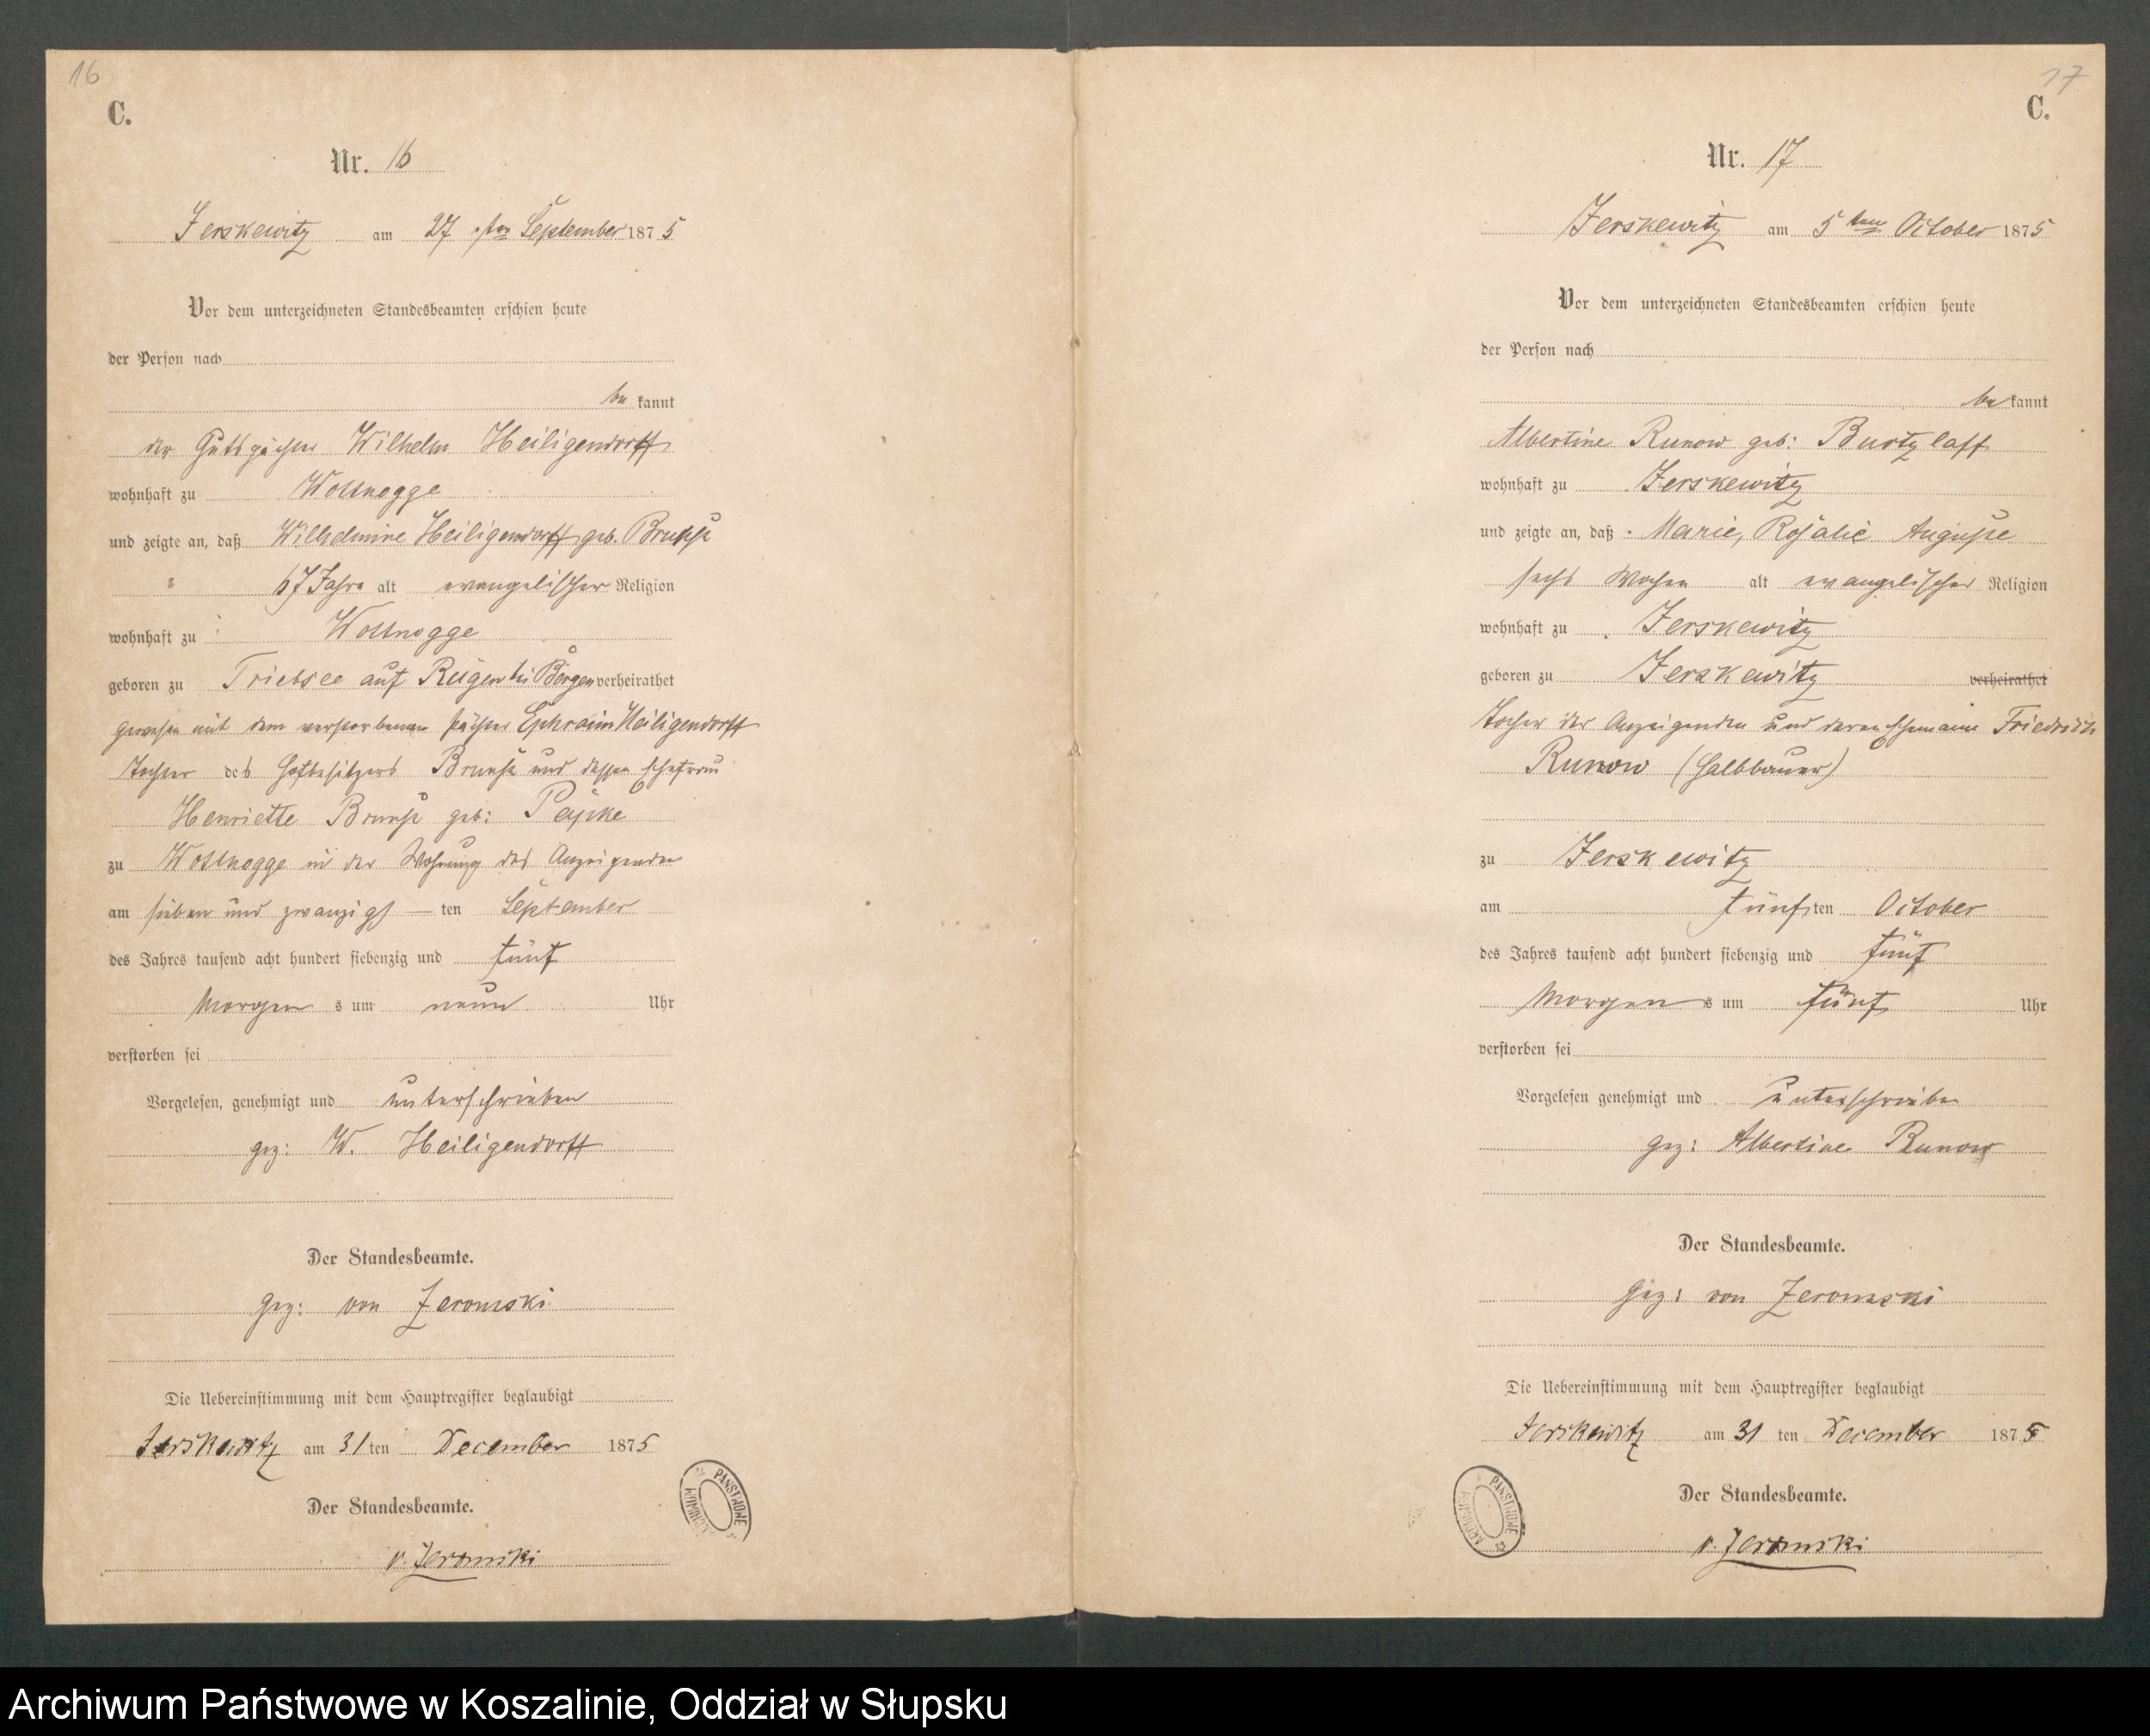 16
C.
Nr. 16
Jerskewitz am 27 sten September 1875
Vor dem unterzeichneten Standesbeamten erschien heute
der Person nach
bekannt
der Gutspächter Wilhelm Heiligendorff
wohnhaft zu Wollnogge
und zeigte an, daß Wilhelmine Heiligendorff geb.
67 Jahre alt evangelischer Religion
wohnhaft zu Wollnogge
geboren zu Triebsee auf Reügen bei Bergen verheirathet
gewesen mit dem verstorbenen Pächter Ephraim Heiligendorff
Tochter des Hofbesitzers und dessen Ehefrau
Henriette geb: Papke
zu Wollnogge in der Wohnung des Anzeigenden
am sieben und zwanzigs — ten September
des Jahres tausend acht hundert siebenzig und fünf
Morgen s um neun Uhr
verstorben sei
Vorgelesen, genehmigt und unterschrieben
gez: W. Heiligendorff
Der Standesbeamte.
gez: von Zeromski
Die Uebereinstimmung mit dem Hauptregister beglaubigt
Jerskewitz am 31 ten December 1875
Der Standesbeamte.
v. Zeromski
PAŃSTWOWE ARCHIWUM
17
C.
Nr. 17
Jerskewitz am 5 ten October 1875
Vor dem unterzeichneten Standesbeamten erschien heute
der Person nach
bekannt
Albertine Runow geb: Burtzlaff
wohnhaft zu Jerskewitz
und zeigte an, daß Marie, Rosalie Auguste
sechs Wochen alt evangelischer Religion
wohnhaft zu Jerskewitz
geboren zu Jerskewitz verheirathet
Tochter der Anzeigenden und deren Ehemann Friedrich
Runow (Halbbauer)
zu Jerskewitz
am fünf ten October
des Jahres tausend acht hundert siebenzig und fünf
Morgen s um fünf Uhr
verstorben sei
Vorgelesen genehmigt und unterschrieben
gez: Albertine Runow
Der Standesbeamte.
gez: von Zeromski
Die Uebereinstimmung mit dem Hauptregister beglaubigt
Jerskewitz am 31 ten December 1875
Der Standesbeamte.
v. Zeromski
PAŃSTWOWE ARCHIWUM
Archiwum Państwowe w Koszalinie, Oddział w Słupsku